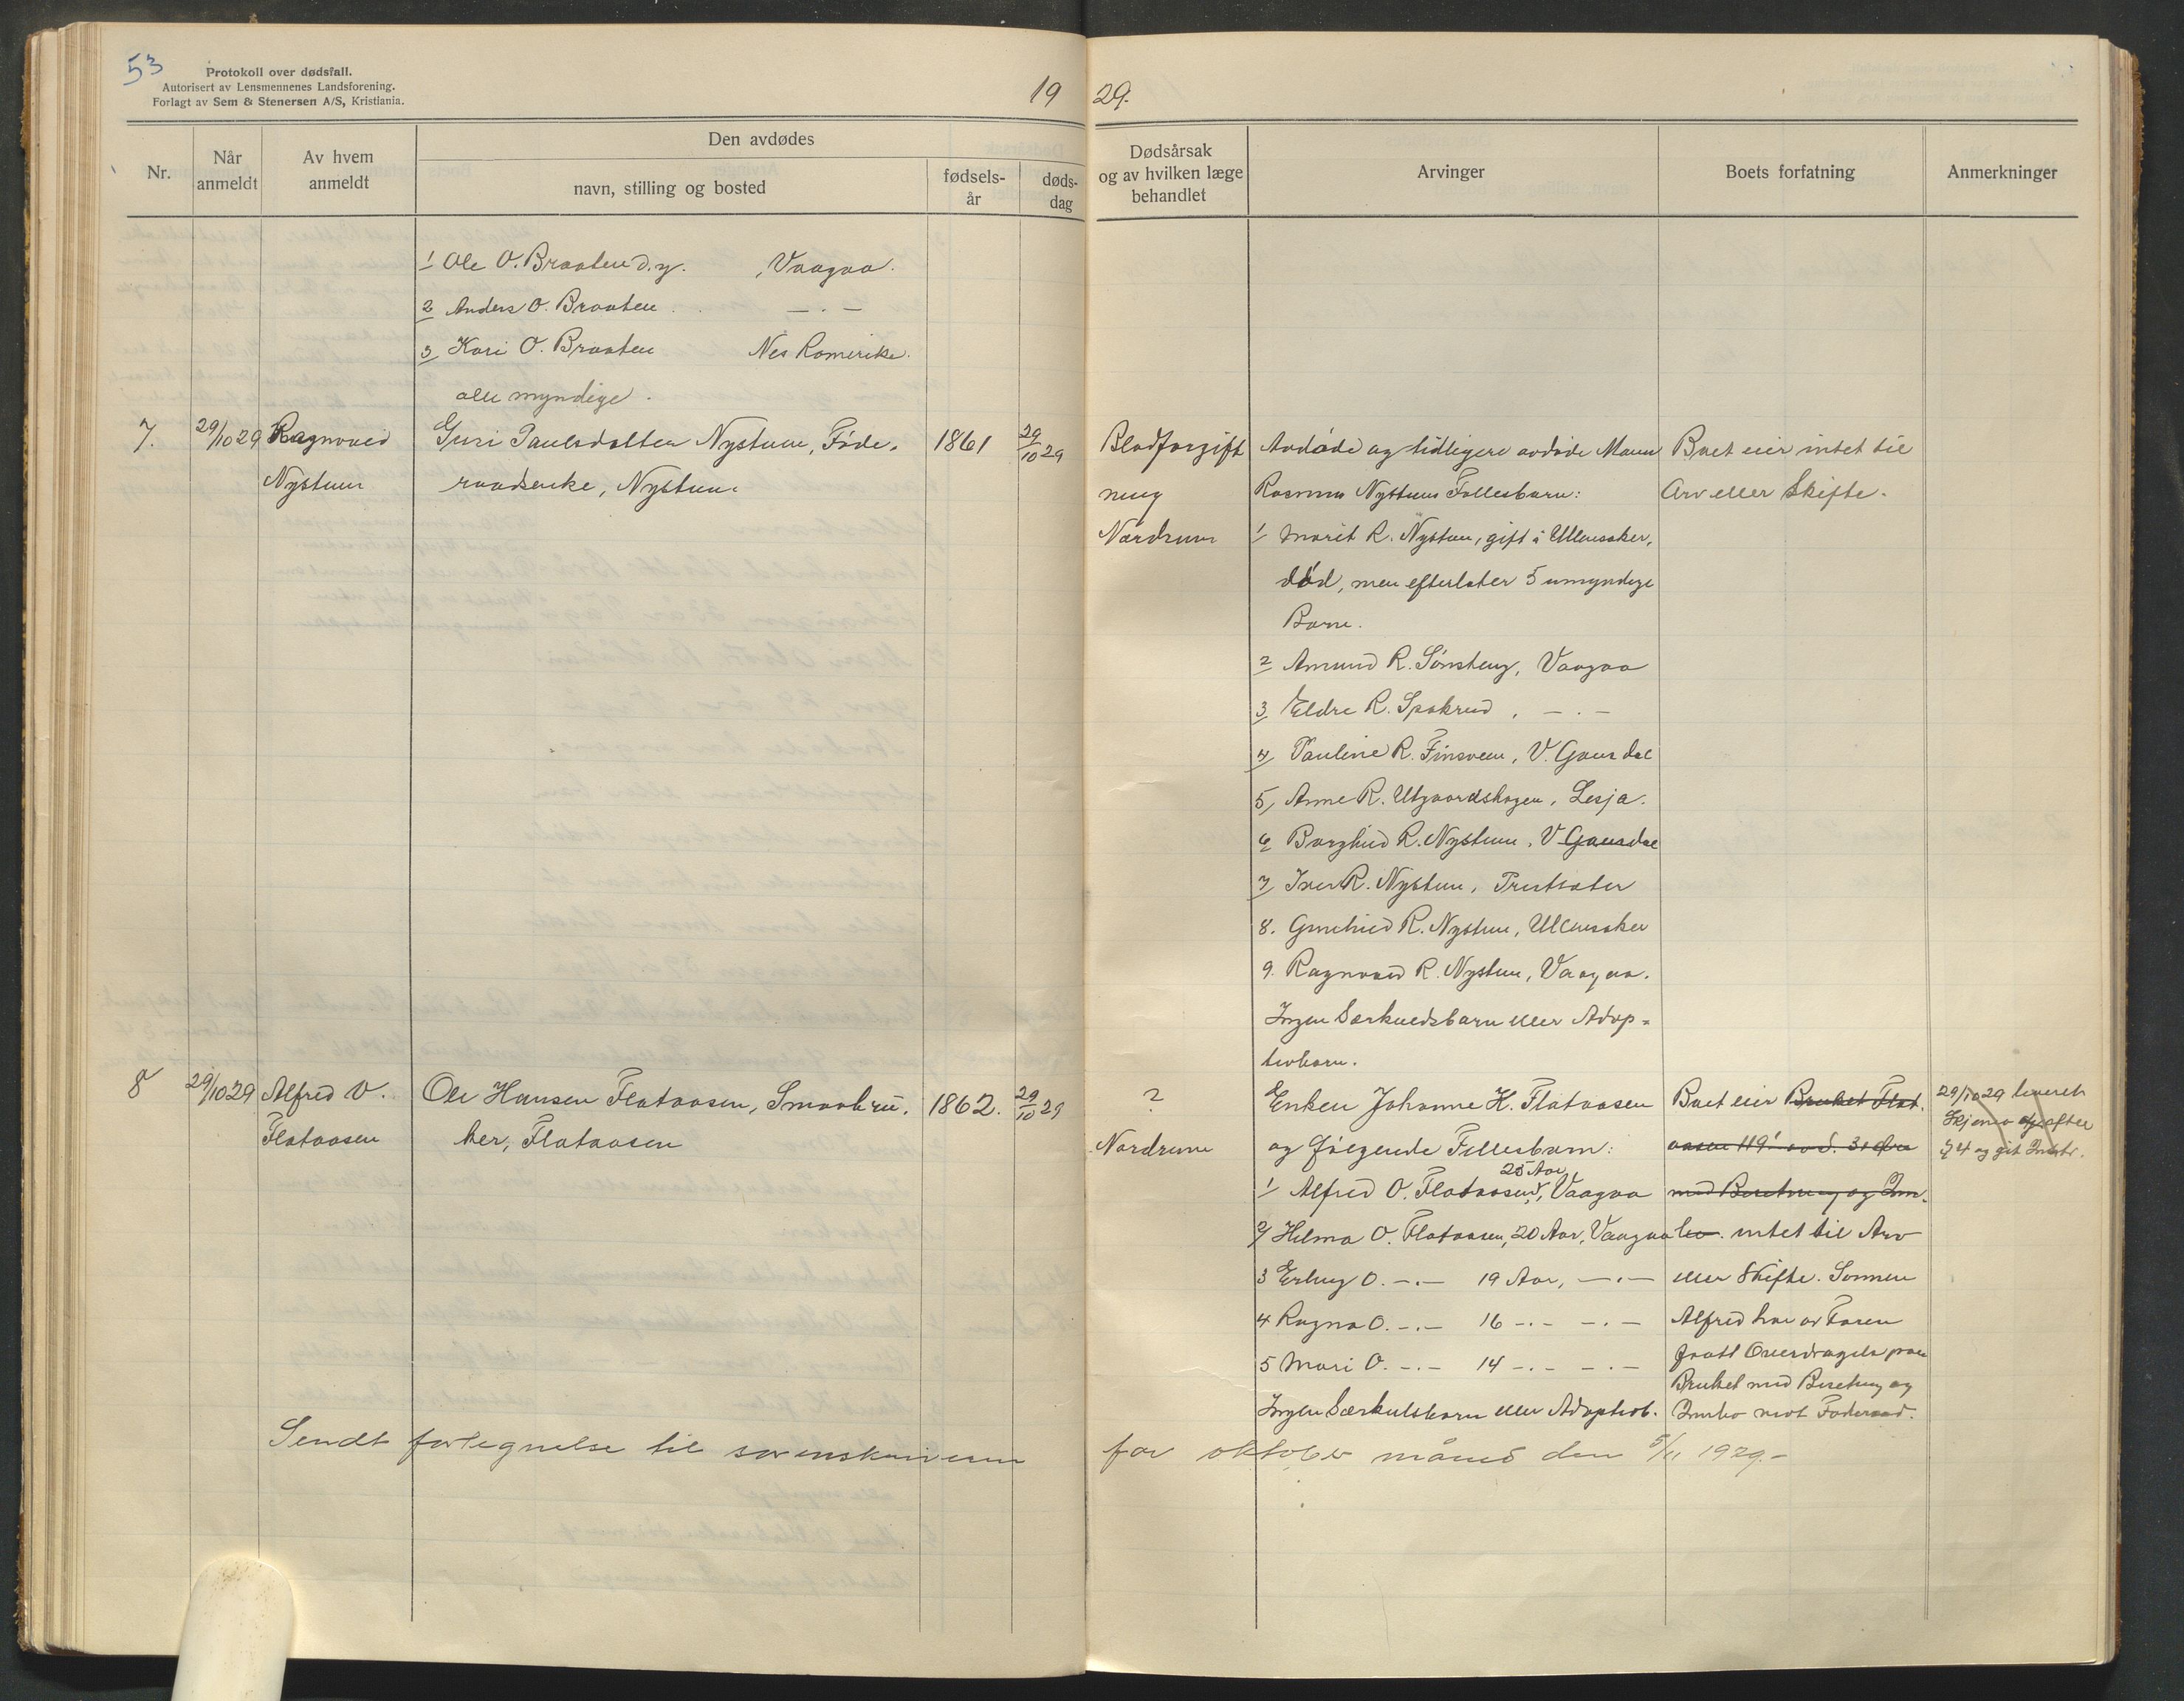 53
Protokoll over dødsfall.
Autorisert av Lensmennenes Landsforening.
Forlagt av Sem & Stenersen A/S, Kristiania.
19 29.
Nr.
Når anmeldt
Av hvem anmeldt
Den avdødes
navn, stilling og bosted
fødselsår
dødsdag
Dødsårsak og av hvilken læge behandlet
Arvinger
Boets forfatning
Anmerkninger
1 Ole O. Braaten d.y. , Vaagaa.
2 Anders O. Braaten — . —
3 Kari O. Braaten Nes Romerike.
alle myndige.
7. 29/10 29 Ragnvald
Nystuen
Guri Paulsdatter Nystuen, Føde-
raadsenke, Nystuen.
1861
29/10 29
Blodforgift
ning
Nordrum
Avdøde og tidligere avdøde Mann
Rasmus Nystuens Fellesbarn:
1 Marit R. Nystuen, gift i Ullensaker,
død, men efterlater 5 umyndige
Barn.
2 Amund R. Sønsteng, Vaagaa
3 Eldre R. Spakrud, — . —
4 Pauline R. Finsveen, V. Gausdal
5, Anne R. Utgaardshagen, Lesja.
6 Borghild R. Nystuen, V Gausdal
7 Iver R. Nystuen, Tretsæter
8. Gunhild R. Nystuen, Ullensaker
9. Ragnvald R. Nystuen, Vaagaa.
Ingen Særkuldsbarn eller Adop-
tivbarn.
Boet eier intet til
Arv eller Skifte.
8 29/10 29 Alfred O.
Flataasen
Ole Hansen Flataasen, Smaabru-
ker, Flataasen
1862.
29/10 29
?
Nordrum
Enken Johanne H. Flataasen
og følgende Fellesbarn:
1 Alfred O. Flataasen, 25 Aar, Vaagaa
2 Hilma O. Flataasen, 20 Aar, Vaagaa
3 Erling O. — . — 19 Aar, — . —
4 Ragna O. — . — 16 — . — — . —
5 Mari O. — . — 14 — . — — . —
Ingen Særkulsbarn eller Adoptivb.
Boet eier Bruket Flat-
aasen 119/1 av S.
med Besetning og Inn-
bo. intet til Arv
eller Skifte. Sønnen
Alfred har av Faren
faatt Overdragelse paa
Bruket med Besetning og
Innbo mot Føderaad.
29/10 29 leveret
Skjema efter
§ 4 og git Instr.
Sendt fortegnelse til sorenskriveren for oktober måned den 5/11 1929.-